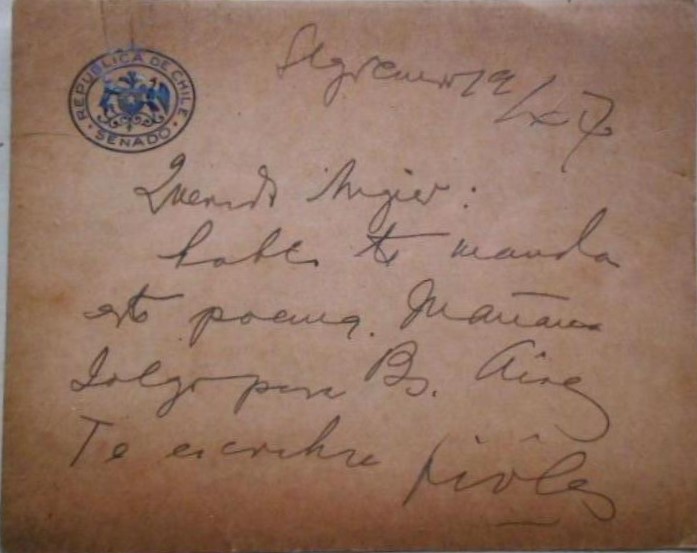 REPUBLICA DE CHILE
SENADO
enero 19/47
Querido Augier:
Pablo te manda
este poema. Mañana
salgo para Bs. Aires
Te escribiré Nicolás